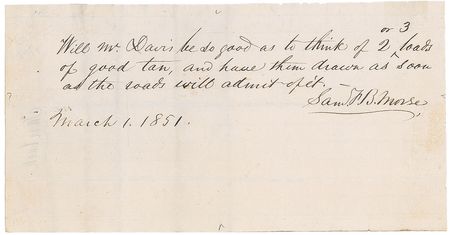 Will Mr Davis be so good as to think of 2 or 3 loads
of good tan, and have them drawn as soon
as the roads will admit of it.
Saml F. B. Morse
March 1. 1851.